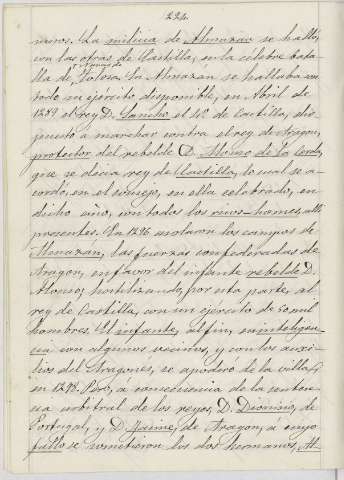 224.
minos. La milicia de Almazán se halló,
con las otras de Castilla, en la célebre bata
lla de las Navas de Tolosa. En Almazán se hallaba con
todo su ejército disponible, en Abril de
1289 el rey D. Sancho, el 4º de Castilla, dis
puesto a marchar contra el rey de Aragon,
protector del rebelde D. Alonso de la Cerda,
que se decia rey de Castilla, lo cual se a
cordó, en el consejo, en ella celebrado, en
dicho año, con todos los ricos-homes allí
presentes. En 1296 asolaron los campos de
Almazán, las fuerzas confederadas de
Aragon, en favor del infante rebelde D.
Alonso, hostilizando, por esta parte, al
rey de Castilla, con un ejército de 50 mil
hombres. El infante, al fin, en inteligen
cia con algunos vecinos, y con los auxi
lios del Aragones, se apoderó de la villa,
en 1298. Pero, á consecuencia de la senten
cia arbitral de los reyes, D. Dionisio, de
Portugal, y D. Jaime, de Aragon, a cuyo
fallo se sometieron los dos hermanos, Al